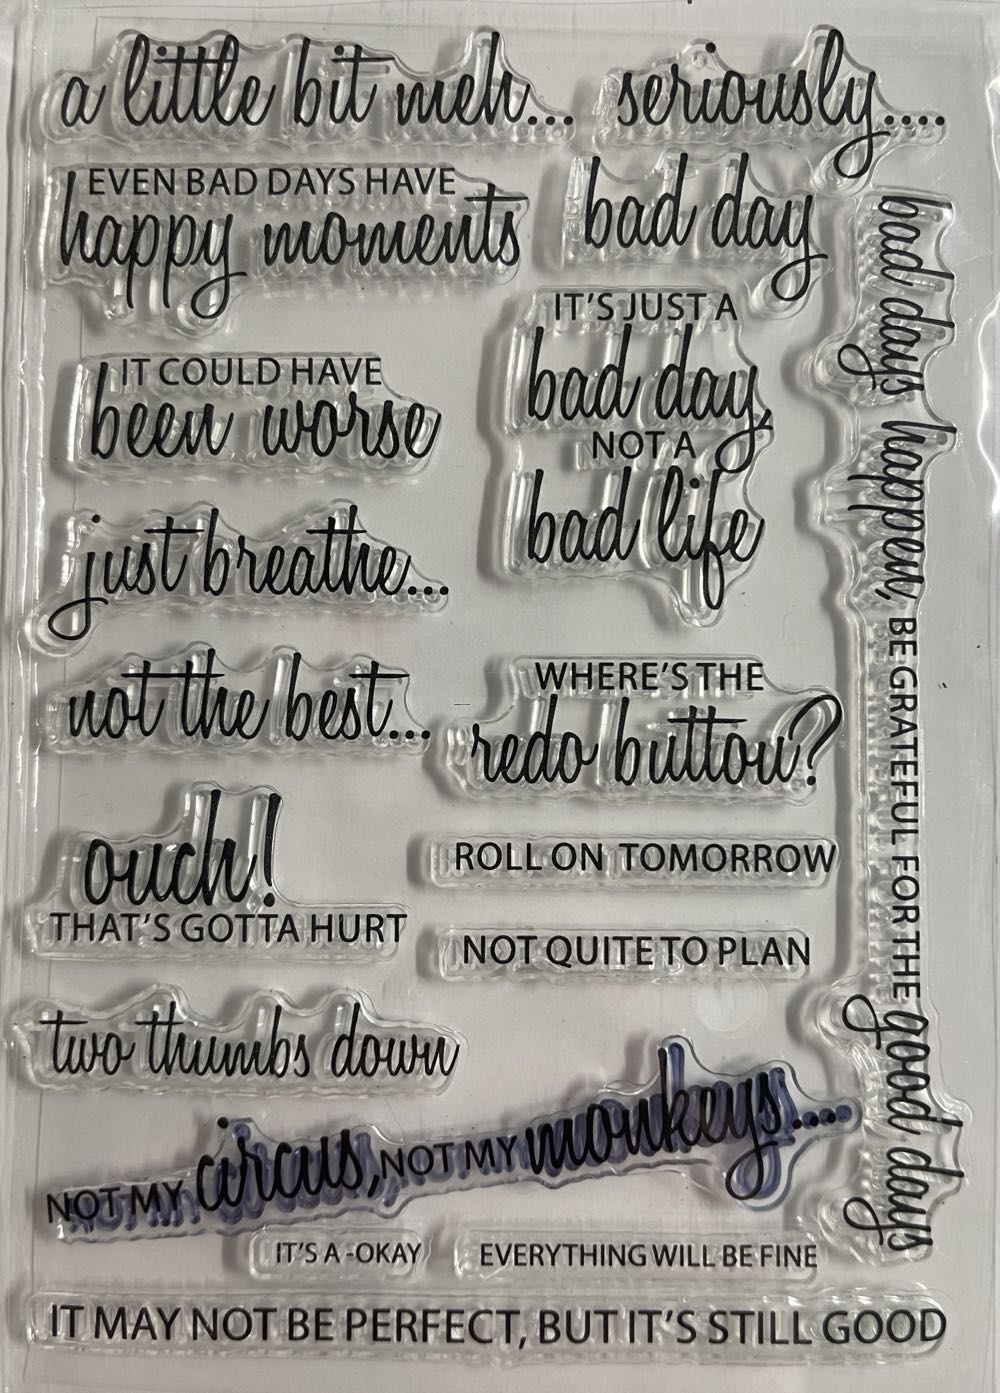 a little bit meh...
seriously....
EVEN BAD DAYS HAVE
happy moments
bad day
IT'S JUST A
bad day,
NOT A
bad life
IT COULD HAVE
been worse
just breathe...
not the best...
WHERE'S THE
redo button?
ouch!
THAT'S GOTTA HURT
ROLL ON TOMORROW
NOT QUITE TO PLAN
two thumbs down
NOT MY circus, NOT MY monkeys....
IT'S A-OKAY
EVERYTHING WILL BE FINE
IT MAY NOT BE PERFECT, BUT IT'S STILL GOOD
bad days happen, BE GRATEFUL FOR THE good days